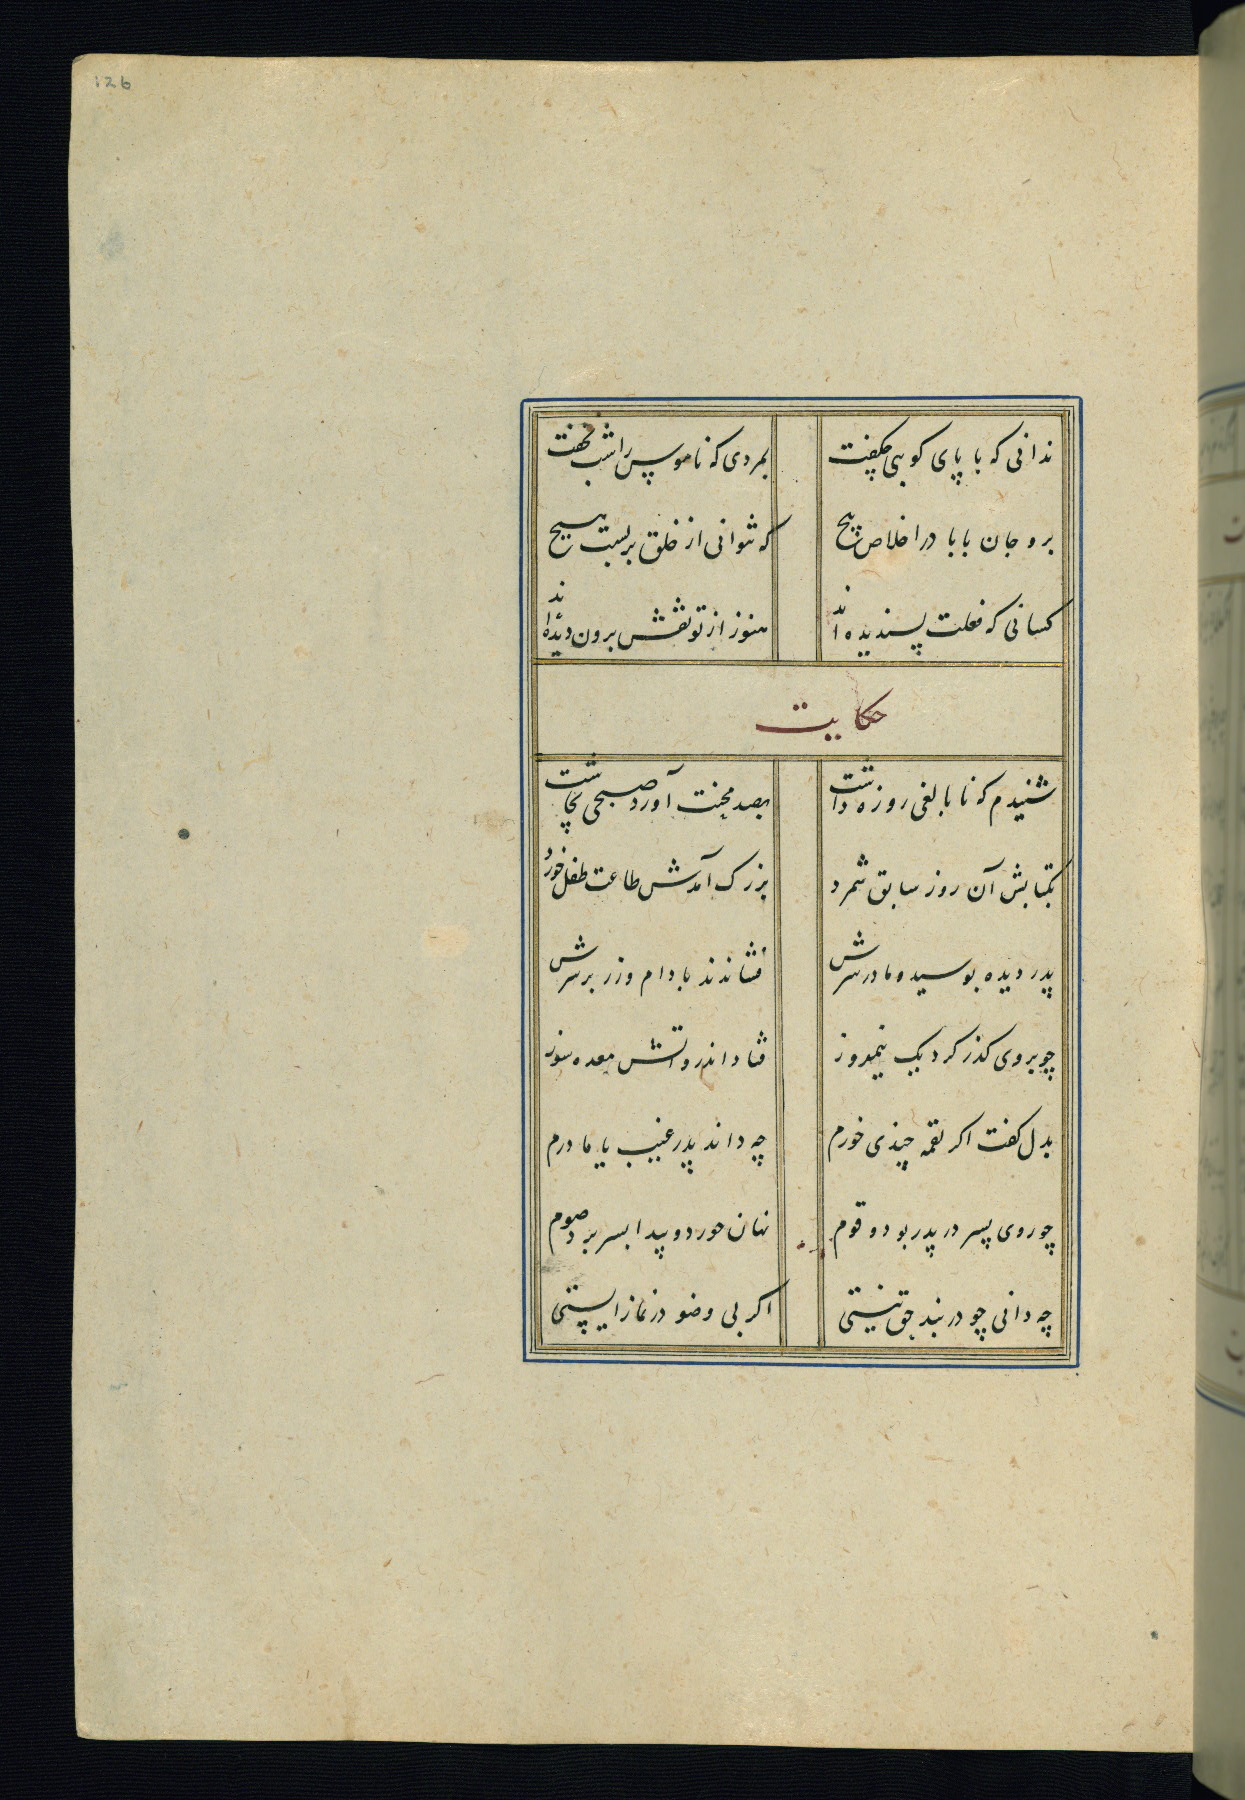 126
ندانی که بابای کوهی چه گفت بمردی که ناموس را شب نخفت
برو جان بابا در اخلاص پیچ که نتوانی از خلق بربست هیچ
کسانی که فعلت پسندیده‌اند هنوز از تو نقش برون دیده‌اند
حکایت
شنیدم که نابالغی روزه داشت بصد محنت آورد صبحی بچاشت
بکتابش آن روز سابق شمرد بزرگ آمدش طاعت طفل خورد
پدر دیده بوسید و مادر سرش فشاندند بادام و زر بر سرش
چو بر وی گذر کرد یک نیمروز فتاد اندرو آتش معده سوز
بدل کفت اکر لقمه چیزی خورم چه داند پدر غیب یا مادرم
چو روی پسر در پدر بود و قوم نهان خورد و پیدا بسر برد صوم
چه دانی چو در بند حق نیستی اکر بی وضو در نماز ایستی